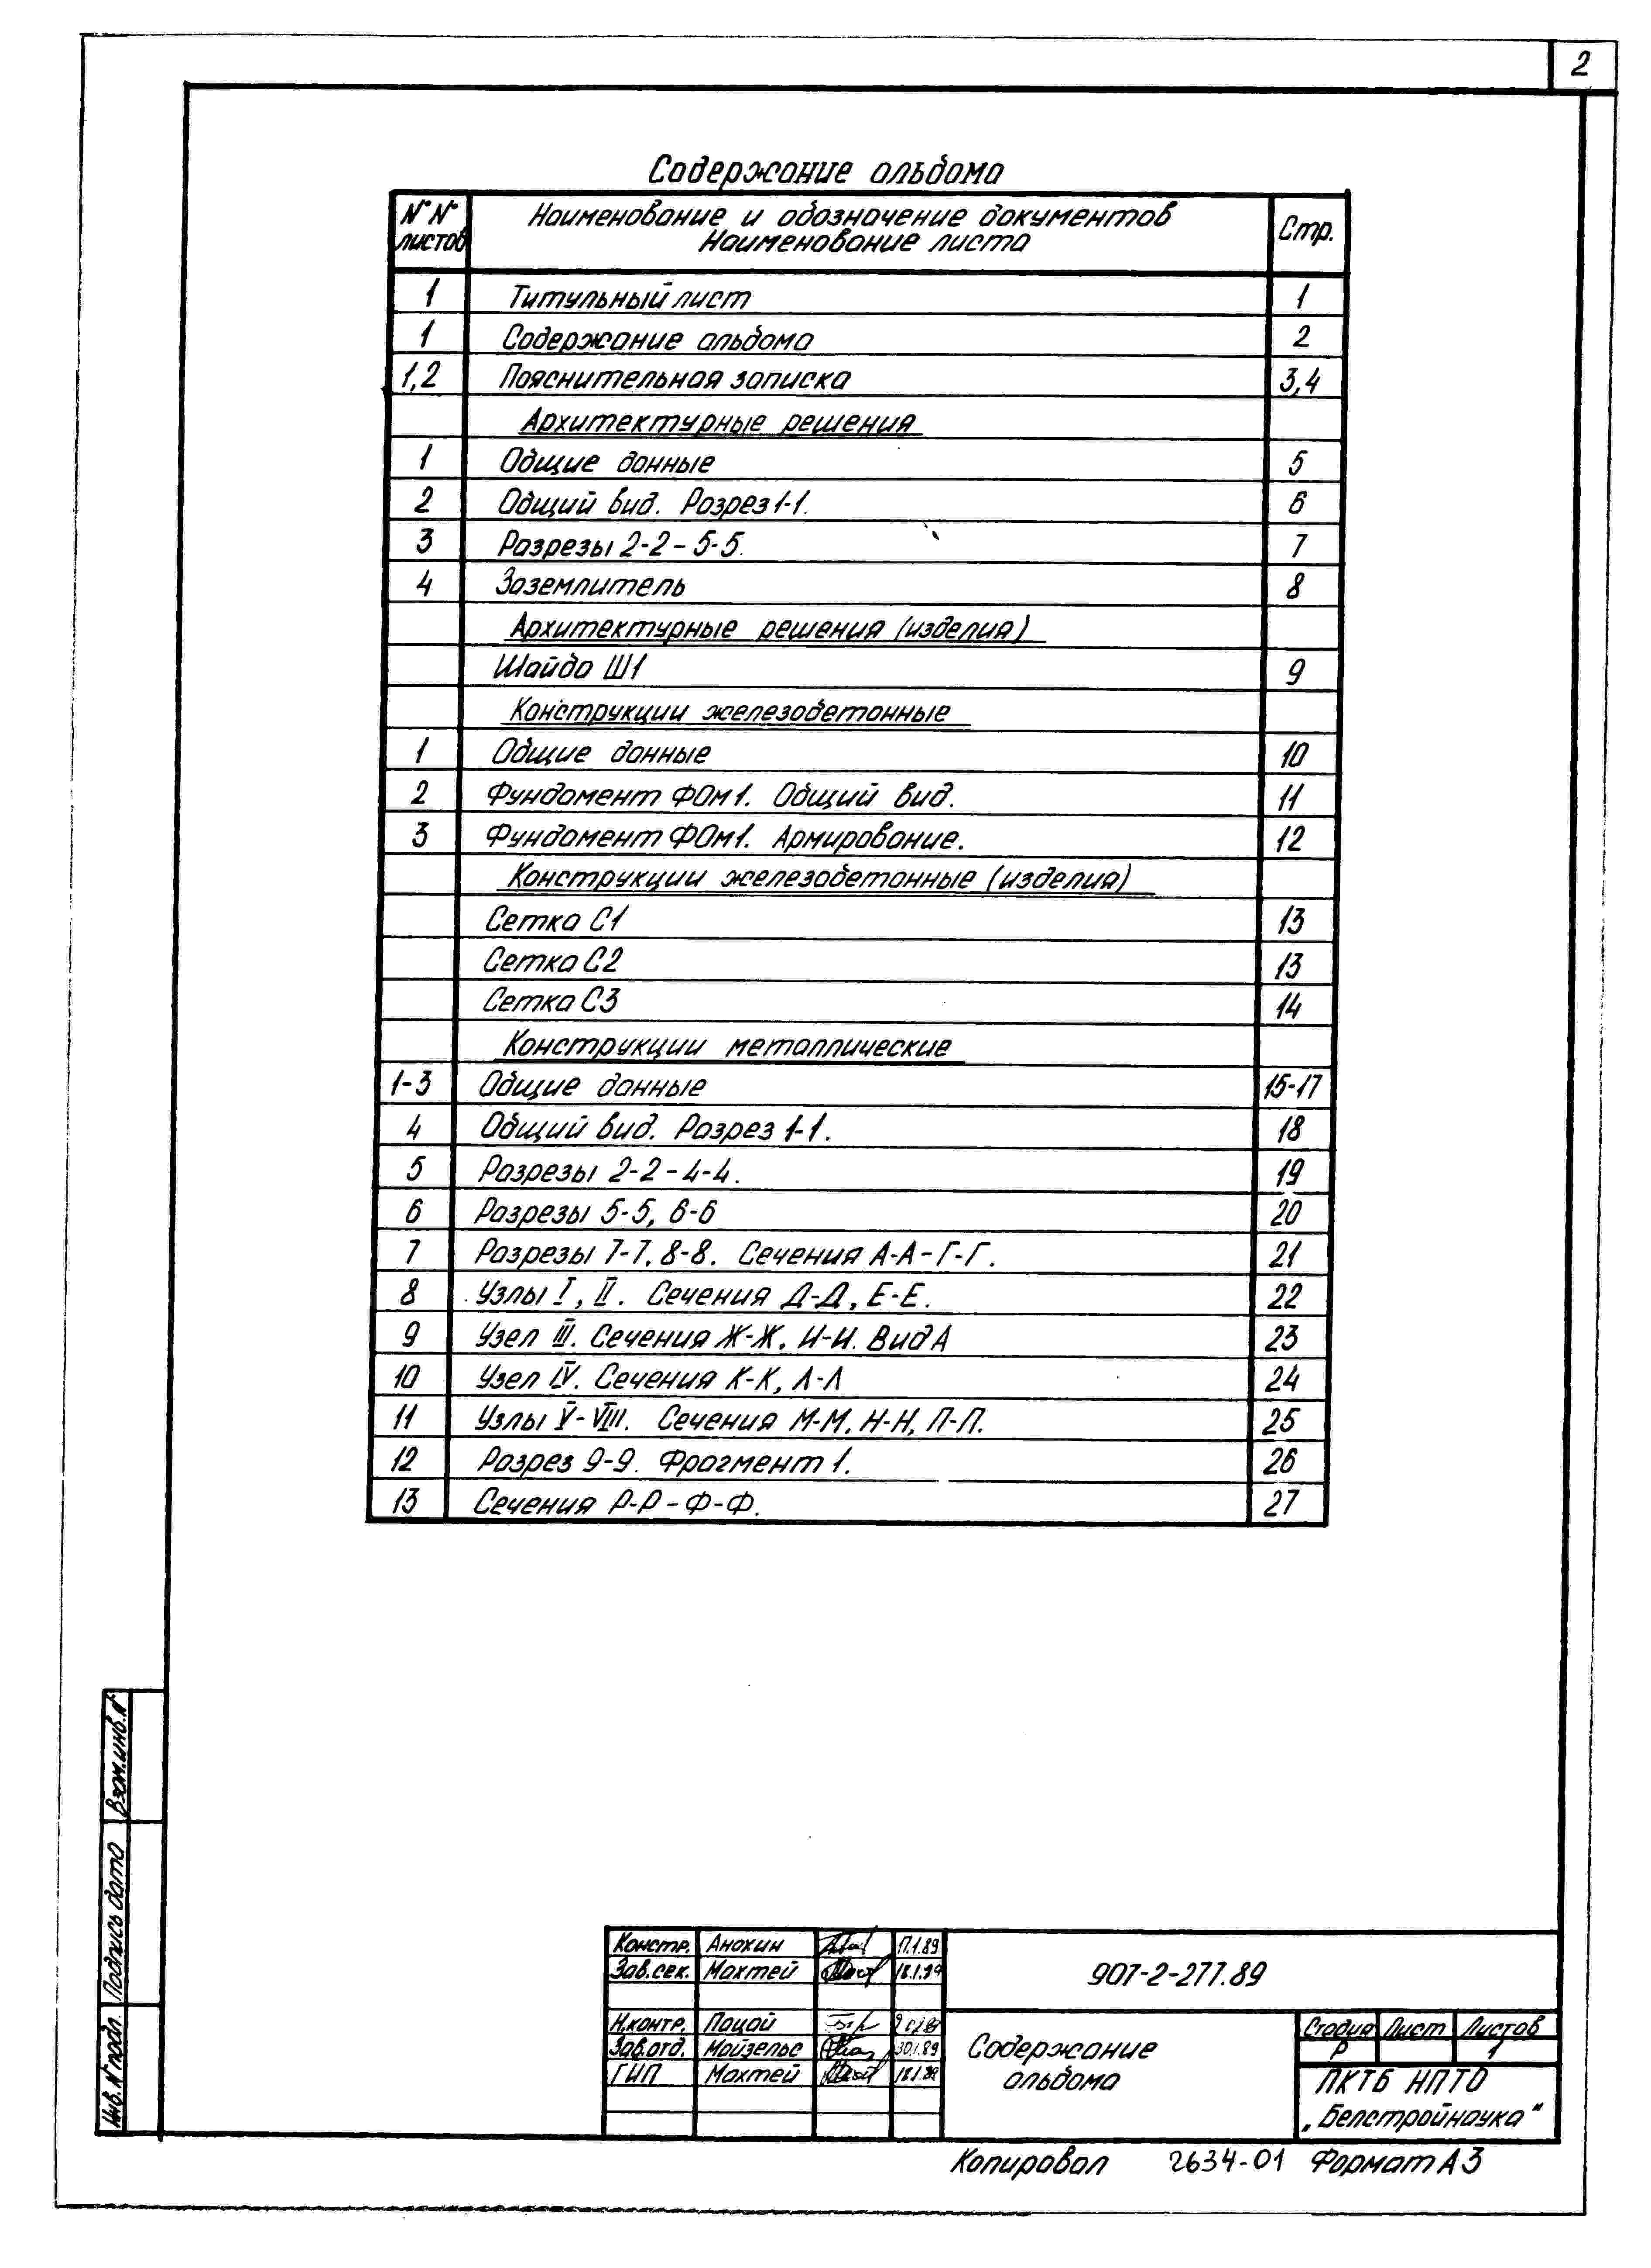 2
Содержание альбома
№№ листов Наименование и обозначение документов Наименование листа Стр.
1 Титульный лист 1
1 Содержание альбома 2
1,2 Пояснительная записка 3,4
Архитектурные решения
1 Общие данные 5
2 Общий вид. Разрез 1-1. 6
3 Разрезы 2-2 – 5-5. 7
4 Заземлитель 8
Архитектурные решения (изделия)
Шайба Ш1 9
Конструкции железобетонные
1 Общие данные 10
2 Фундамент ФОм1. Общий вид. 11
3 Фундамент ФОм1. Армирование. 12
Конструкции железобетонные (изделия)
Сетка С1 13
Сетка С2 13
Сетка С3 14
Конструкции металлические
1-3 Общие данные 15-17
4 Общий вид. Разрез 1-1. 18
5 Разрезы 2-2 – 4-4. 19
6 Разрезы 5-5, 6-6 20
7 Разрезы 7-7, 8-8. Сечения А-А – Г-Г. 21
8 Узлы I, II. Сечения Д-Д, Е-Е. 22
9 Узел III. Сечения Ж-Ж, И-И. Вид А 23
10 Узел IV. Сечения К-К, Л-Л 24
11 Узлы V-VIII. Сечения М-М, Н-Н, П-П. 25
12 Разрез 9-9. Фрагмент 1. 26
13 Сечения Р-Р – Ф-Ф. 27
Взам.инв.№
Подпись дата
Инв.№ подл.
Констр. Анохин 17.1.89
Зав.сек. Махтей 18.1.89
907-2-277.89
Н.контр. Пацай
Зав.отд. Мойзельс 30.1.89
ГИП Махтей 18.1.89
Содержание
альбома
Стадия Лист Листов
Р 1
ПКТБ НПТО
„Белстройнаука"
Копировал 2634-01 Формат А3